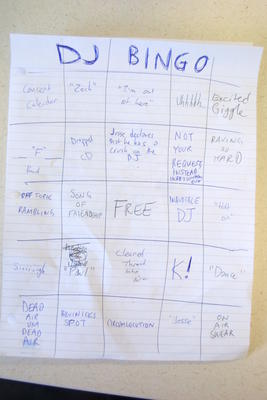 DJ BINGO
Concert
Calendar
"Zach"
"I'm out
of here"
Uhhhhh
Excited
Giggle
"F"
Dropped
CD
Jesse declares
that he has a
crush on the
DJ
NOT
YOUR
REQUEST
INSTEAD
RAVING
SO
HARD
OFF TOPIC
RAMBLING
SONG
OF
FRIENDSHIP
FREE
INAUDIBLE
DJ
Siiiiiigh
"Paul"
Cleared
Throat
K!
"Dance"
DEAD
AIR
DEAD
AIR
SPOT
"Jesse"
ON
AIR
SWEAR